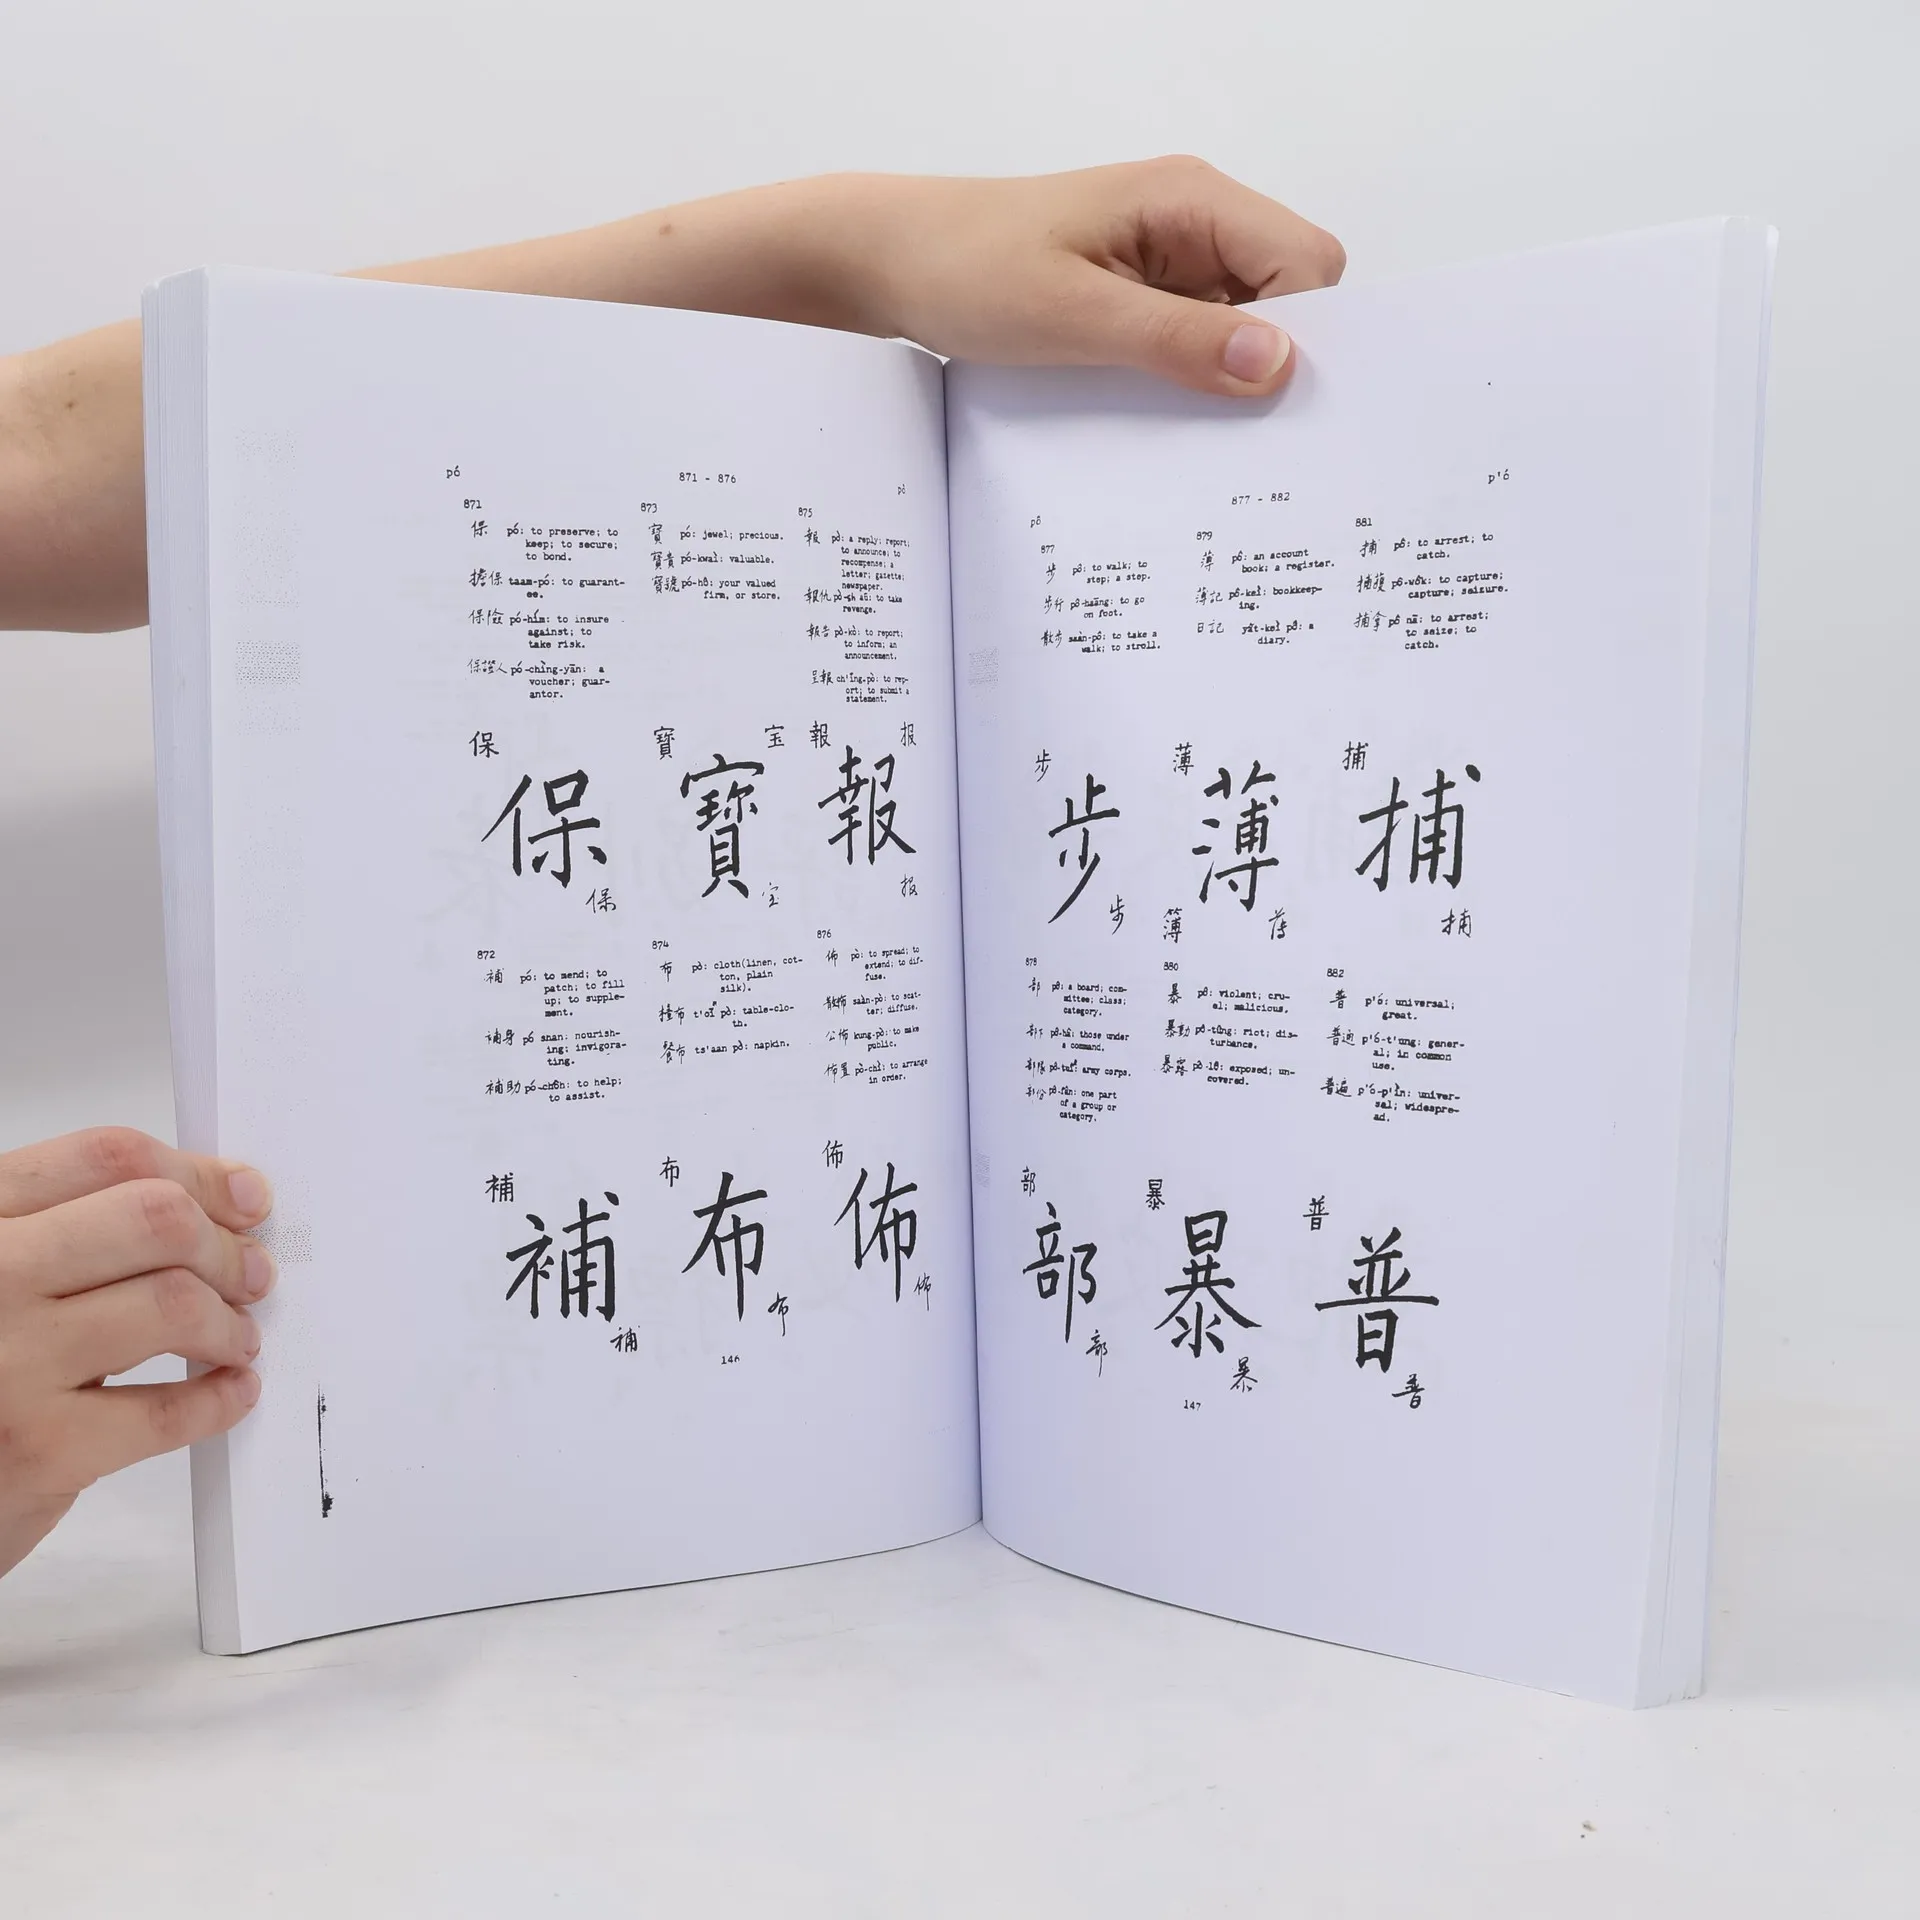 pó
871 - 876
pò
871
保 pó: to preserve; to
keep; to secure;
to bond.
擔保 taam-pó: to guarant-
ee.
保險 pó-hím: to insure
against; to
take risk.
保證人 pó-chìng-yān: a
voucher; guar-
antor.
保
保
保
873
寶 pó: jewel; precious.
寶貴 pó-kwaì: valuable.
寶號 pó-hô: your valued
firm, or store.
寶
宝
寶
宝
875
報 pò: a reply; report;
to announce; to
recompense; a
letter; gazette;
newspaper.
報仇 pò-sh aū: to take
revenge.
報告 pò-kò: to report;
to inform; an
announcement.
呈報 ch'īng-pò: to rep-
ort; to submit a
statement.
報
报
報
报
872
補 pó: to mend; to
patch; to fill
up; to supple-
ment.
補身 pó shan: nourish-
ing; invigora-
ting.
補助 pó-chôh: to help;
to assist.
補
補
補
874
布 pò: cloth(linen, cot-
ton, plain
silk).
檯布 t'oī pò: table-clo-
th.
餐布 ts'aan pò: napkin.
布
布
布
876
佈 pò: to spread; to
extend; to dif-
fuse.
散佈 saàn-pò: to scat-
ter; diffuse.
公佈 kung-pò: to make
public.
佈置 pò-chì: to arrange
in order.
佈
佈
佈
146
pô
877 - 882
p'ó
877
步 pô: to walk; to
step; a step.
步行 pô-haāng: to go
on foot.
散步 saàn-pô: to take a
walk; to stroll.
步
步
步
879
薄 pô: an account
book; a register.
薄記 pô-keì: bookkeep-
ing.
日記 yât-keì pô: a
diary.
薄
薄
簿
薄
881
捕 pô: to arrest; to
catch.
捕獲 pô-wôk: to capture;
capture; seizure.
捕拿 pô nā: to arrest;
to seize; to
catch.
捕
捕
捕
878
部 pô: a board; com-
mittee; class;
category.
部下 pô-hâ: those under
a command.
部隊 pô-tuî: army corps.
部份 pô-fân: one part
of a group or
category.
部
部
部
880
暴 pô: violent; cru-
el; malicious.
暴動 pô-tûng: riot; dis-
turbance.
暴露 pô-lô: exposed; un-
covered.
暴
暴
暴
882
普 p'ó: universal;
great.
普通 p'ó-t'ung: gener-
al; in common
use.
普遍 p'ó-p'ìn: univer-
sal; widespre-
ad.
普
普
普
147